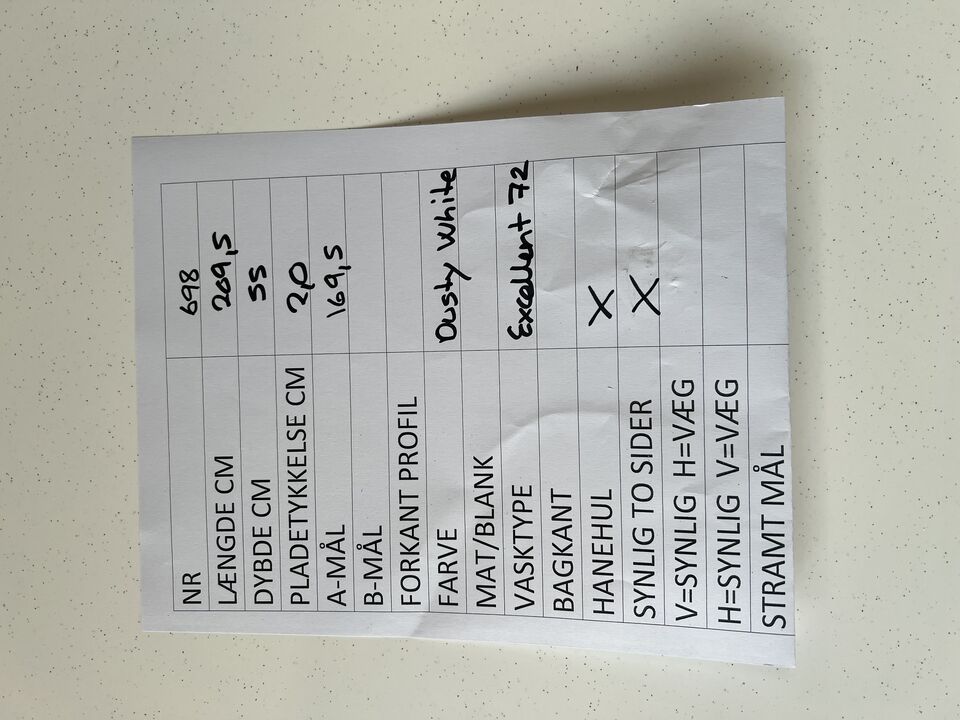 NR 698
LÆNGDE CM 209,5
DYBDE CM 55
PLADETYKKELSE CM 2,0
A-MÅL 169,5
B-MÅL
FORKANT PROFIL
FARVE Dusty White
MAT/BLANK
VASKTYPE Excellent 72
BAGKANT
HANEHUL X
SYNLIG TO SIDER X
V=SYNLIG H=VÆG
H=SYNLIG V=VÆG
STRAMT MÅL